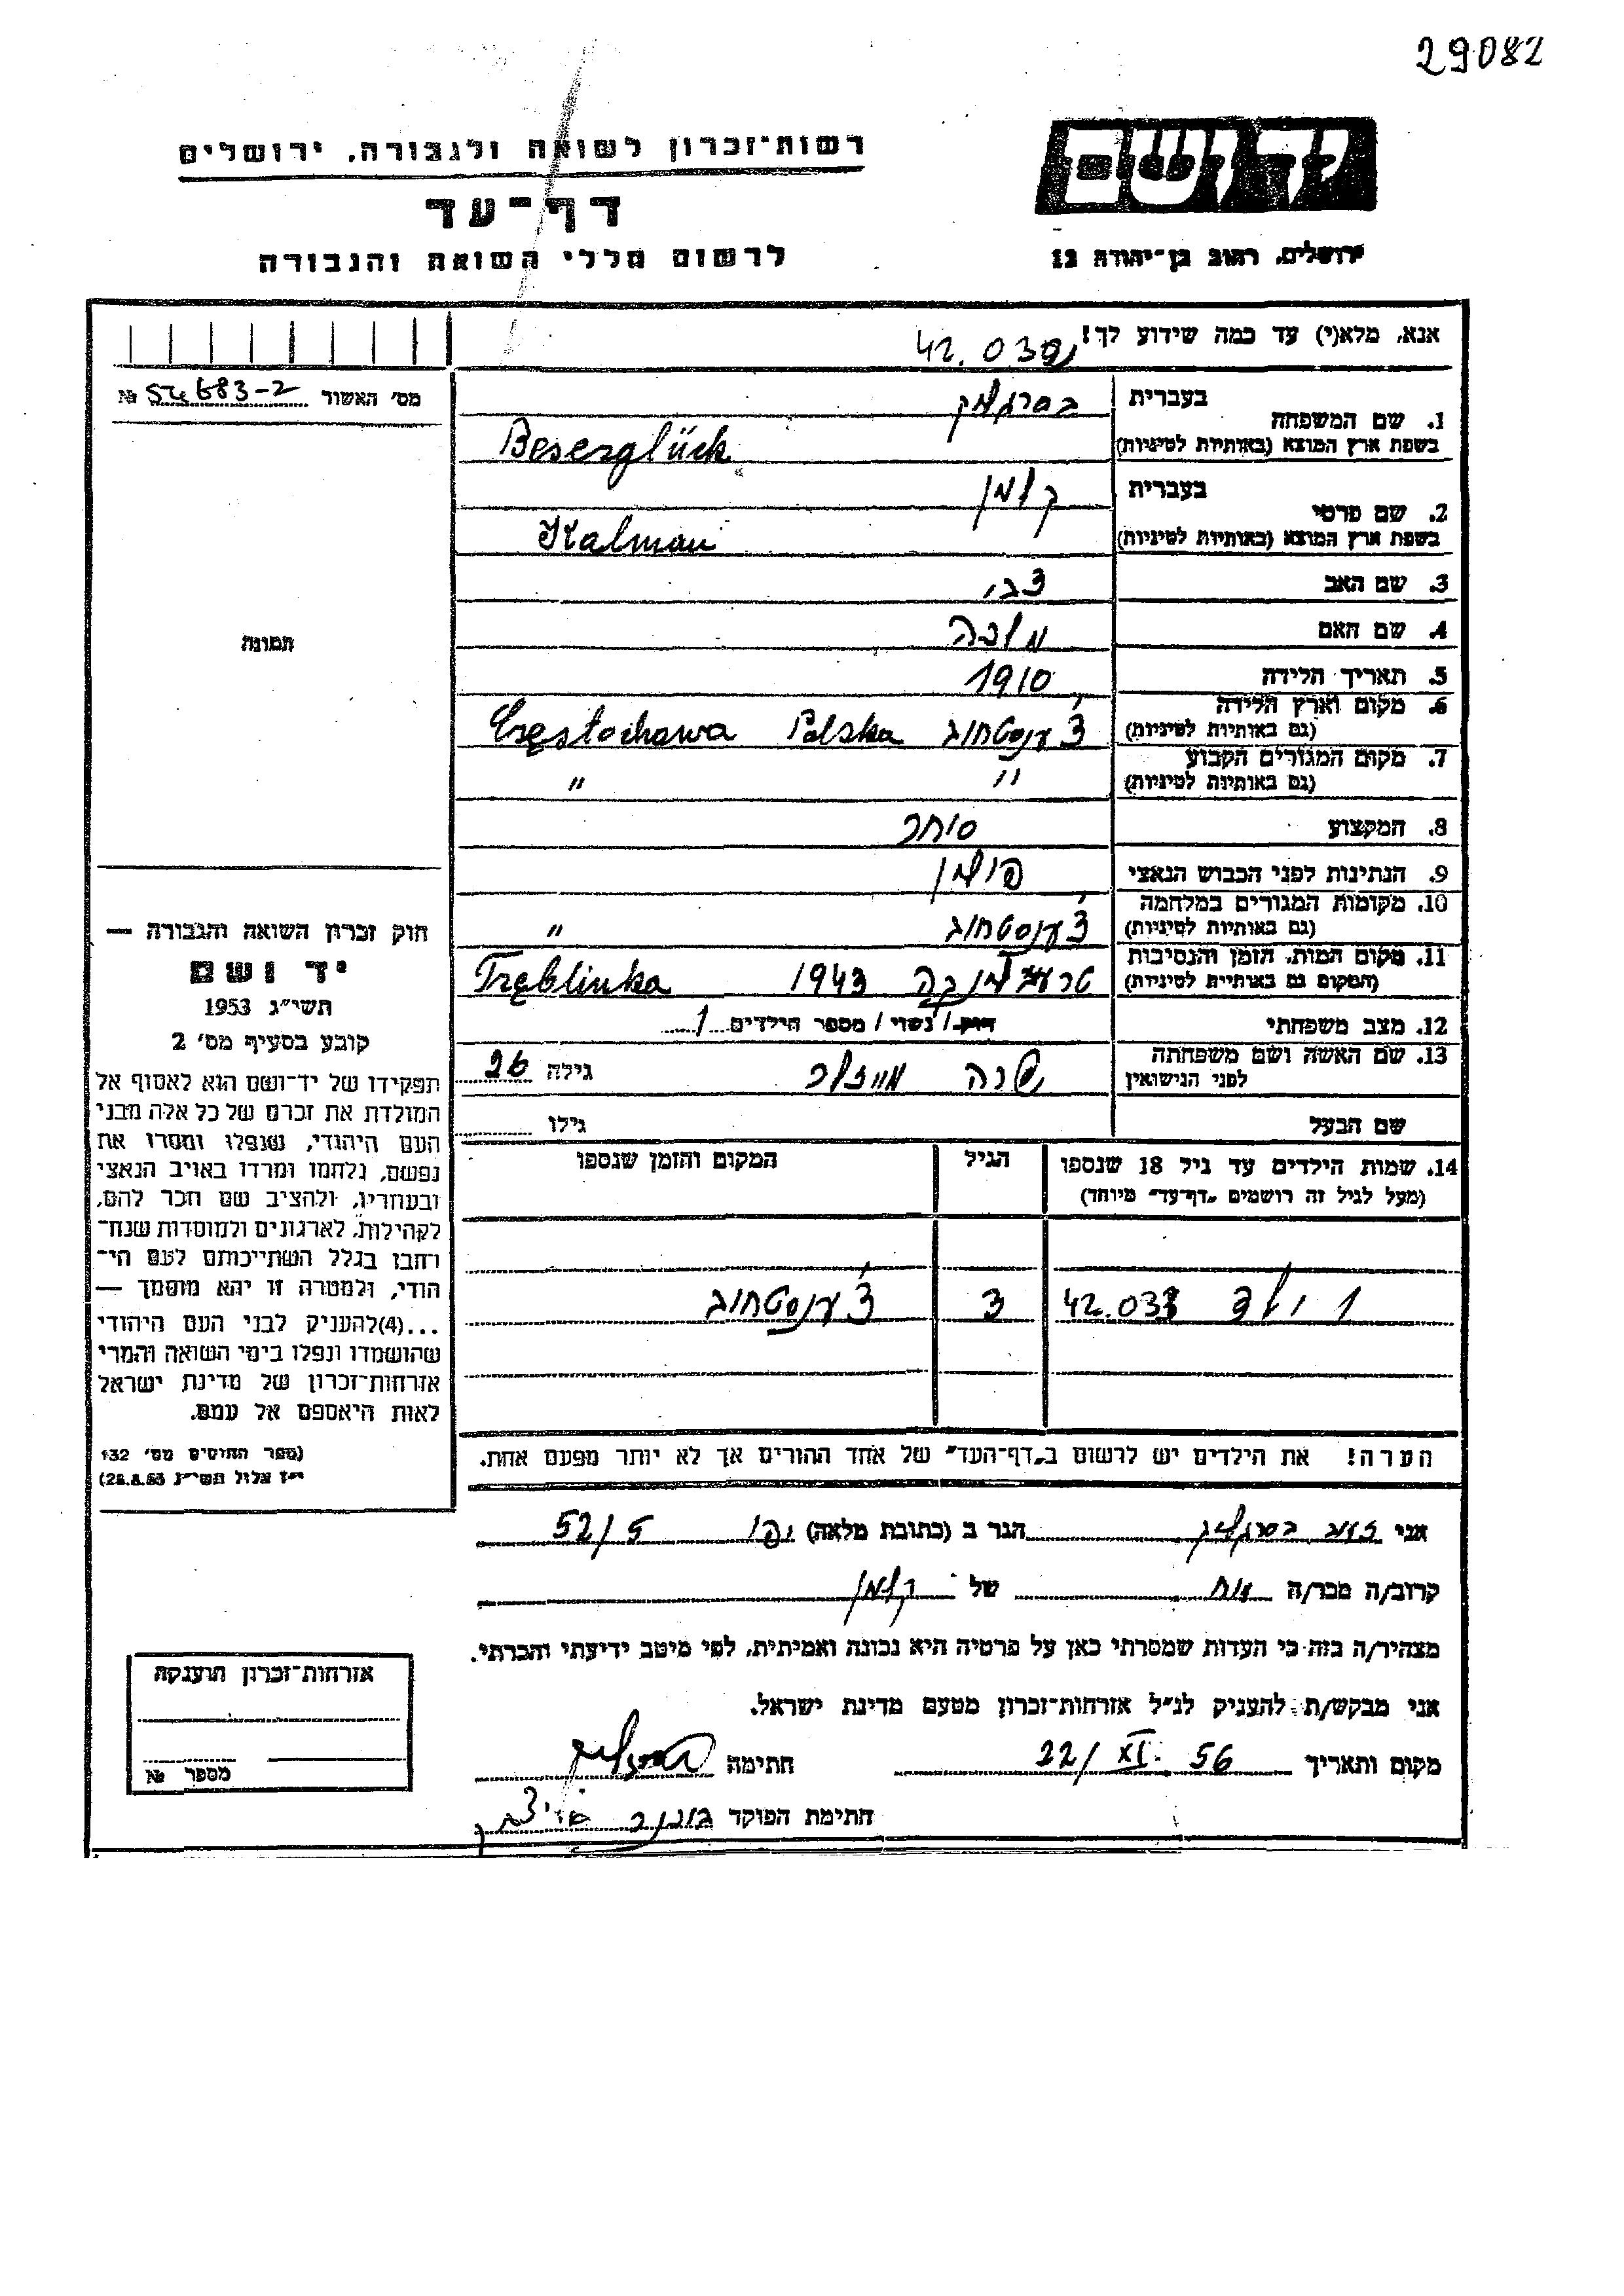 29082
יד ושם
רשות־זכרון לשואה ולגבורה, ירושלים
דף־עד
ירושלים, רחוב בן־יהודה 12
לרשום חללי השואה והגבורה
אנא, מלא(י) עד כמה שידוע לך!
42.030
מס' האשור № 54683-2
1. שם המשפחה
בעברית בסרגליק
בשפת ארץ המוצא (באותיות לטיניות) Beserglück
2. שם פרטי
בעברית קלמן
בשפת ארץ המוצא (באותיות לטיניות) Kalman
3. שם האב צבי
4. שם האם מלכה
5. תאריך הלידה 1910
6. מקום וארץ הלידה
(גם באותיות לטיניות) צ'ענסטחוב Polska Częstochowa
7. מקום המגורים הקבוע
(גם באותיות לטיניות) " "
8. המקצוע סוחר
9. הנתינות לפני הכבוש הנאצי פולין
10. מקומות המגורים במלחמה
(גם באותיות לטיניות) צ'ענסטחוב "
11. מקום המות, הזמן והנסיבות
(המקום גם באותיות לטיניות) טרעבלינקה 1943 Tręblinka
12. מצב משפחתי רווק / נשוי / מספר הילדים 1
13. שם האשה ושם משפחתה
לפני הנישואין שרה גילה 26
שם הבעל גילו
14. שמות הילדים עד גיל 18 שנספו הגיל המקום והזמן שנספו
(מעל לגיל זה רושמים „דף־עד" מיוחד)
1 ילד 42.033 3 צ'ענסטחוב
הערה! את הילדים יש לרשום ב„דף־העד" של אחד ההורים אך לא יותר מפעם אחת.
אני זאב בסרגליק הגר ב (כתובת מלאה) יפו 52/5
קרוב/ה מכר/ה אח של קלמן
מצהיר/ה בזה כי העדות שמסרתי כאן על פרטיה היא נכונה ואמיתית, לפי מיטב ידיעתי והכרתי.
אני מבקש/ת להעניק לנ"ל אזרחות־זכרון מטעם מדינת ישראל.
מקום ותאריך 22/XI. 56 חתימה
חתימת הפוקד
תמונה
חוק זכרון השואה והגבורה —
יד ושם
תשי"ג 1953
קובע בסעיף מס' 2
תפקידו של יד־ושם הוא לאסוף אל
המולדת את זכרם של כל אלה מבני
העם היהודי, שנפלו ומסרו את
נפשם, נלחמו ומרדו באויב הנאצי
ובעוזריו, ולהציב שם וזכר להם,
לקהילות, לארגונים ולמוסדות שנח־
רחבו בגלל השתייכותם לעם הי־
הודי, ולמטרה זו יהא מוסמך —
...(4)להעניק לבני העם היהודי
שהושמדו ונפלו בימי השואה והמרי
אזרחות־זכרון של מדינת ישראל
לאות היאספם אל עמם.
(ספר החוקים מס' 132
י"ז אלול תשי"ג 28.8.53)
אזרחות־זכרון הוענקה
מספר №